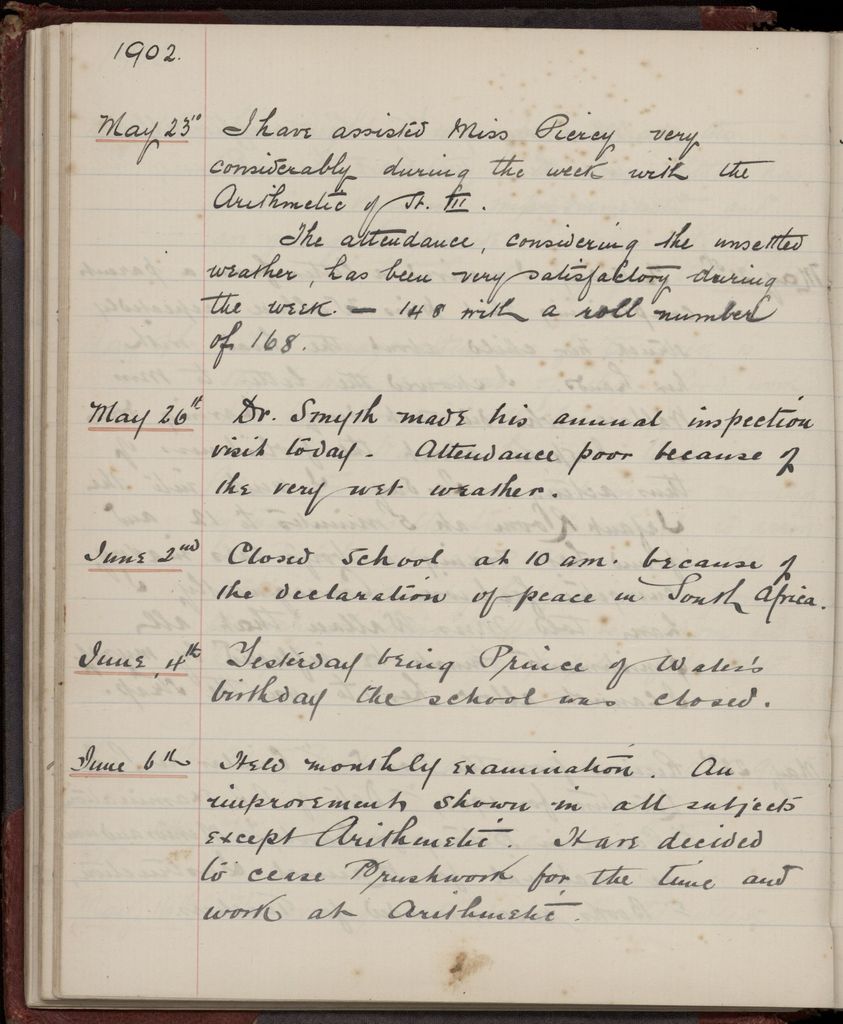 1902.
May 23rd I have assisted Miss Piercy very
considerably during the week with the
Arithmetic of St. III.
The attendance, considering the unsettled
weather, has been very satisfactory during
the week. — 148 with a roll number
of 168.
May 26th Dr. Smyth made his annual inspection
visit today. Attendance poor because of
the very wet weather.
June 2nd Closed school at 10 am. because of
the declaration of peace in South Africa.
June 4th Yesterday being Prince of Wales's
birthday the school was closed.
June 6th Held monthly examination. An
improvement shown in all subjects
except Arithmetic. Have decided
to cease Brushwork for the time and
work at Arithmetic.